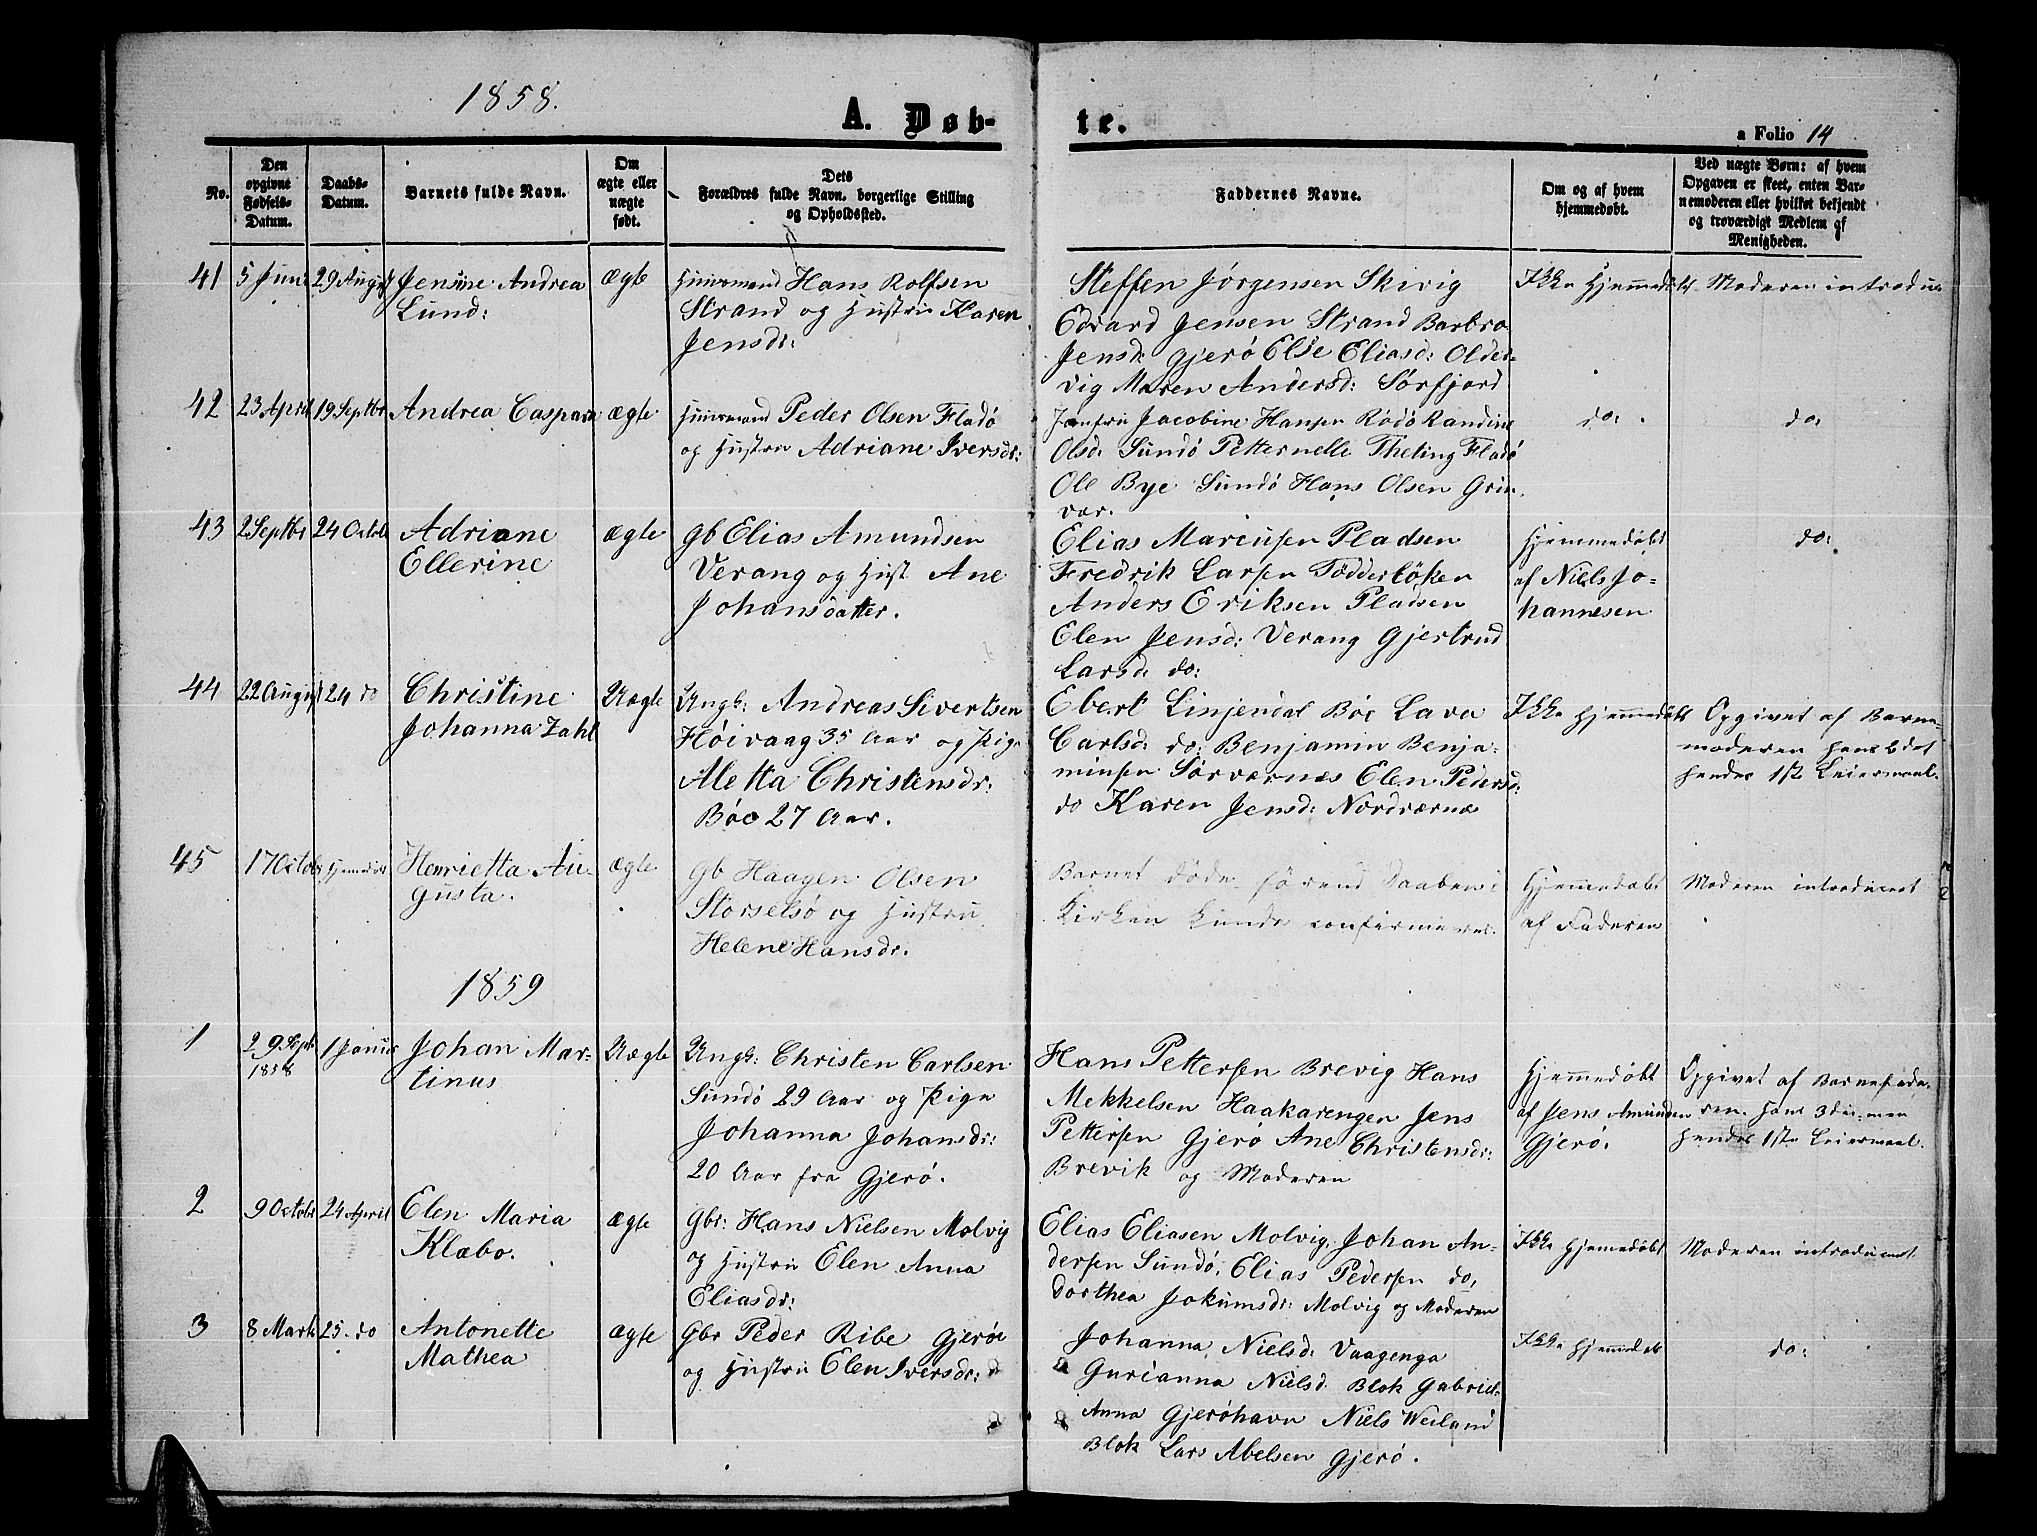 1858.
A. Døb-
te.
a Folio 14
No.
Den opgivne Fødsels-Datum.
Daabs-Datum.
Barnets fulde Navn.
Om ægte eller uægte født.
Dets Forældres fulde Navn, borgerlige Stilling og Opholdsted.
Faddernes Navne.
Om og af hvem hjemmedøbt.
Ved uægte Børn: af hvem
Opgaven er skeet, enten Bar-
nemoderen eller hvilket bekjendt
og troværdigt Medlem af
Menigheden.
41 5 Juni 29 August Jensine Andrea ægte Huusmand Hans Rolfsen
Lund: Strand og Hustru Karen
Jensdr:
Steffen Jørgensen Skivig Ikke Hjemmedøbt Moderen introdu
Edvard Jensen Strand Barbro
Jensd: Gjerø Else Eliasd: Older-
vig Maren Andersd: Sørfjord
42 23 April 19 Septbr Andrea Caspara ægte Huusmand Peder Olsen Fladø
og Hustru Adriane Iversdr:
Jomfru Jacobine Hansen Rødø Randine do: do:
Olsd: Sundø Petternelle Theting Fladø
Ole Bye Sundø Hans Olsen Grin-
vær.
43 2 Septbr 24 Octob Adriane ægte Gb Elias Amundsen
Ellerine Verang og Hust Ane
Johansdatter.
Elias Marcusen Pladsen Hjemmedøbt do:
Fredrik Larsen Tødderløken af Niels Jo-
Anders Eriksen Pladsen hannesen
Elen Jensd: Verang Gjertrud
Larsd: do:
44 22 August 24 do Christine Uægte Ungk: Andreas Sivertsen
Johanna Zahl Høivaag 35 Aar og Pige
Aletta Christensdr:
Bøe 27 Aar.
Ebert Linjendal Bøe Lava Ikke Hjemmedøbt Opgivet af Barne
Carlsd: do: Benjamin Benja- moderen hans 6det
minsen Sørværnes Elen Pedersd: hendes 1ste Leiermaal.
do Karen Jensd: Nordværnes
45 17 Octob Hjemmedøbt Henrietta Au- ægte Gb Haagen Olsen
gusta. Storselsø og Hustru
Helene Hansdr.
Barnet døde førend Daaben i Hjemmedøbt Moderen introduceret
Kirken kunde confirmeres. af Faderen
1859
1 29 Septr 1 Januar Johan Mar- Uægte Ungk: Christen Carlsen
1858 tinus Sundø 29 Aar og Pige
Johanna Johansdr:
20 Aar fra Gjerø.
Hans Pettersen Brevig Hans Hjemmedøbt Opgivet af Barnefade-
Mekkelsen Haakarengen Jens af Jens Amundsen ren. hans 3die men
Pettersen Gjerø Ane Christensdr: Gjerø. hendes 1ste Leiermaal.
Brevik og Moderen
2 9 Octobr 24 April Elen Maria ægte Gbr: Hans Nielsen Molvig
Klæbo. og Hustru Elen Anna
Eliasdr:
Elias Eliasen Molvig, Johan An- Ikke Hjemmedøbt Moderen introduceret.
dersen Sundø, Elias Pedersen do,
Dorthea Jokumsdr: Molvig og Moderen
3 8 Marts 25. do Antonette ægte Gbr Peder Ribe Gjerøe
Mathea og Hustru Elen Iversdr:
Johanna Nielsd: Vaagenga Ikke Hjemmedøbt do:
Gurianna Nielsd. Blok Gabriel-
Anna Gjerøhavn Niels Weiland
Blok Lars Abelsen Gjerø.